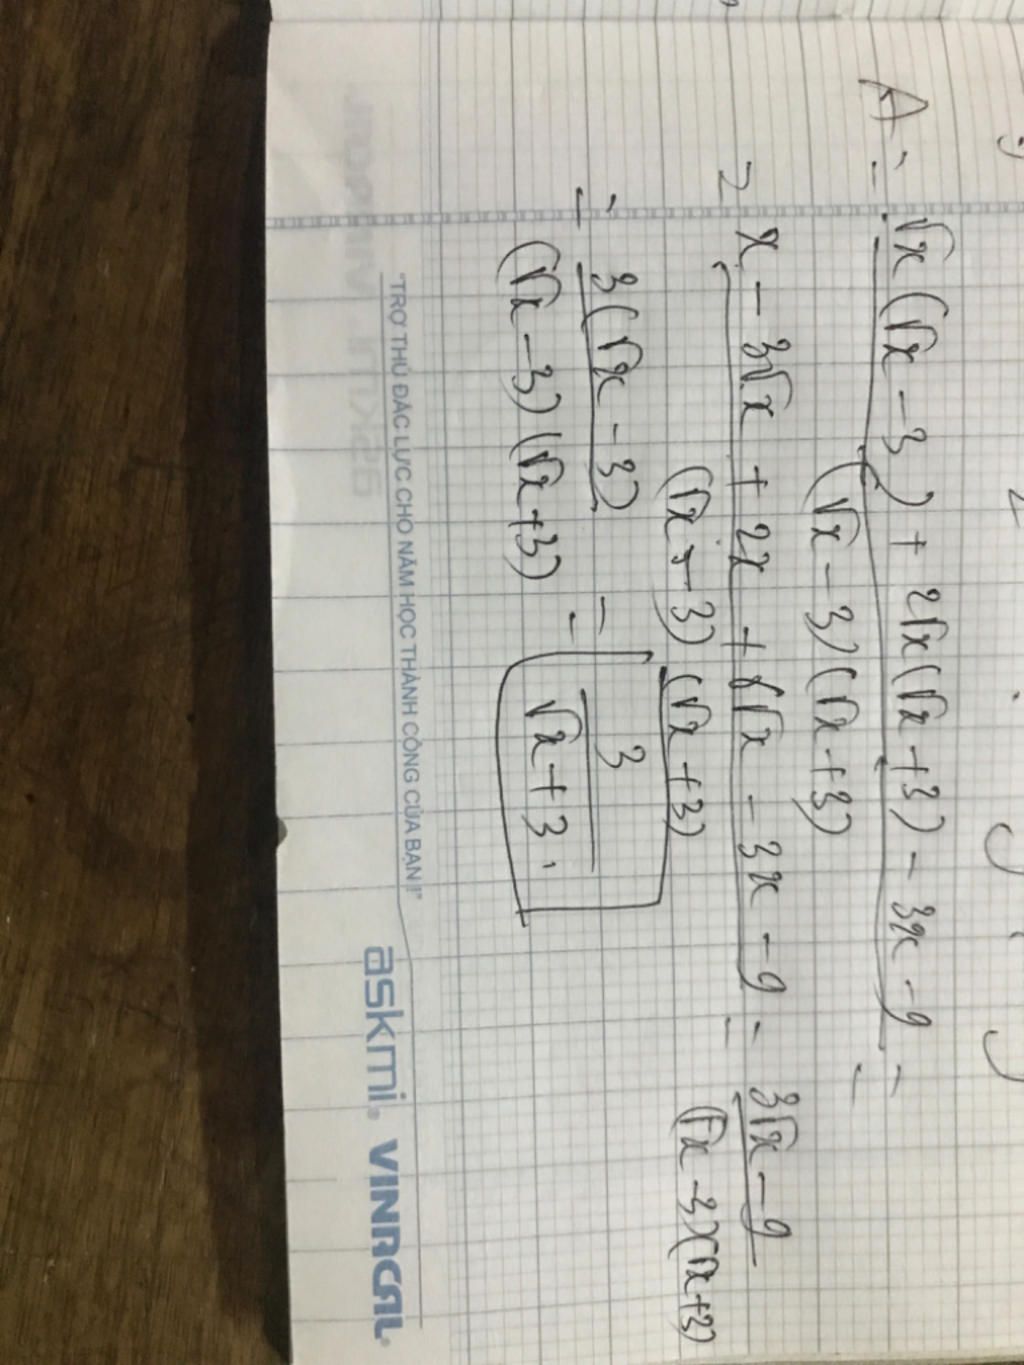 A = √x(√x - 3) + 2√x(√x + 3) - 3x - 9 =
(√x - 3)(√x + 3)
= x - 3√x + 2x + 6√x - 3x - 9 = 3√x - 9
(√x - 3)(√x + 3) (√x - 3)(√x + 3)
= 3(√x - 3) = 3
(√x - 3)(√x + 3) √x + 3.
"TRỢ THỦ ĐẮC LỰC CHO NĂM HỌC THÀNH CÔNG CỦA BẠN!"
askmi. VINACAL